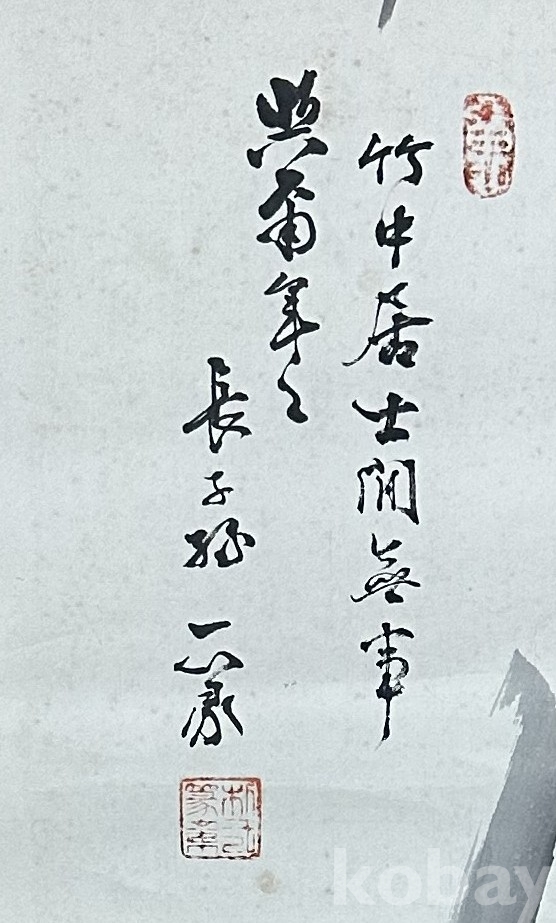 竹中居士閒無事
與爾年々
長子孫 一象
kobay